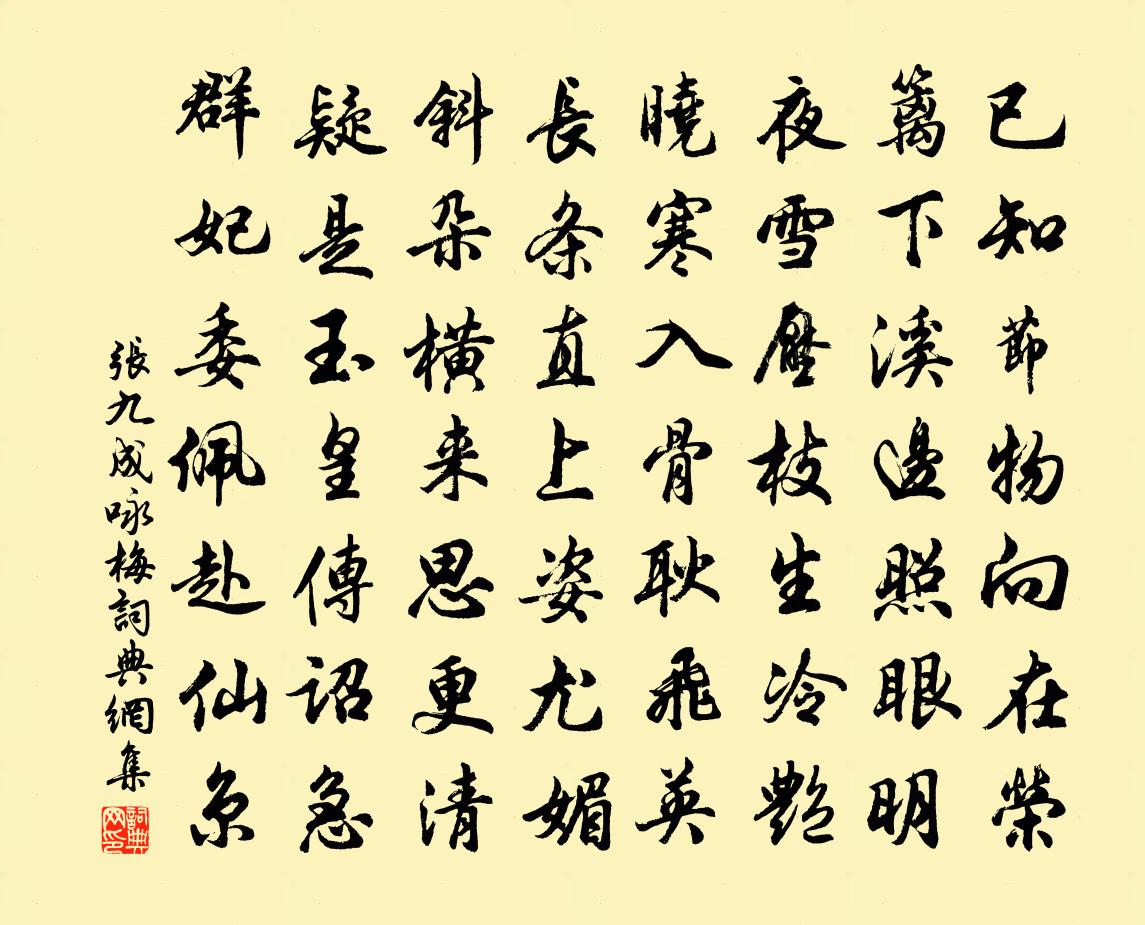 已知節物向在榮
籬下溪邊照眼明
夜雪壓枝生冷艷
曉寒入骨耿飛英
長条直上姿尤媚
斜朵橫来思更清
疑是玉皇傳詔急
群妃委佩赴仙京
張九成咏梅詞典網集
詞典网印